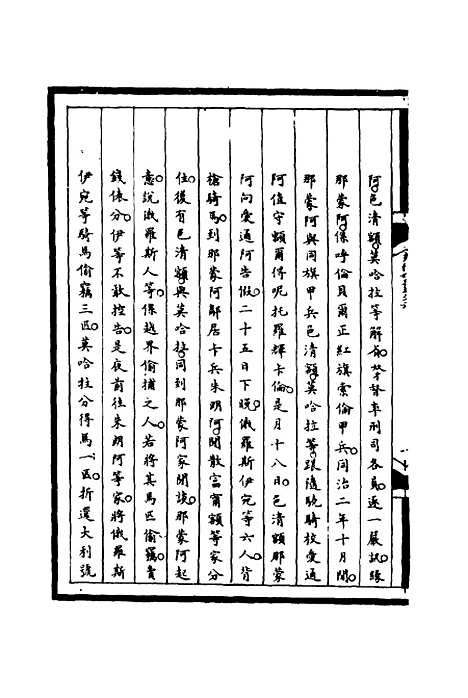 阿色清額莫哈拉等解省督率刑司各員逐一嚴訊緣
那蒙阿係呼倫貝爾正紅旗索倫甲兵同治二年十月間
那蒙阿與同旗甲兵色清額莫哈拉等跟隨驍騎校愛通
阿值守額爾得呢托羅輝卡倫是月十八日色清額那蒙
阿向愛通阿告假二十五日下晚俄羅斯伊宛等六人背
槍騎馬到那蒙阿鄰居卡兵朱朗阿閒散富甯額等家分
住後有色清額與莫哈拉同到那蒙阿家閒談那蒙阿起
意說俄羅斯人等係越界偷捕之人若將其馬匹偷竊賣
錢俵分伊等不敢控告是夜前往朱朗阿等家將俄羅斯
伊宛等騎馬偷竊三匹莫哈拉分得馬一匹折還大利號